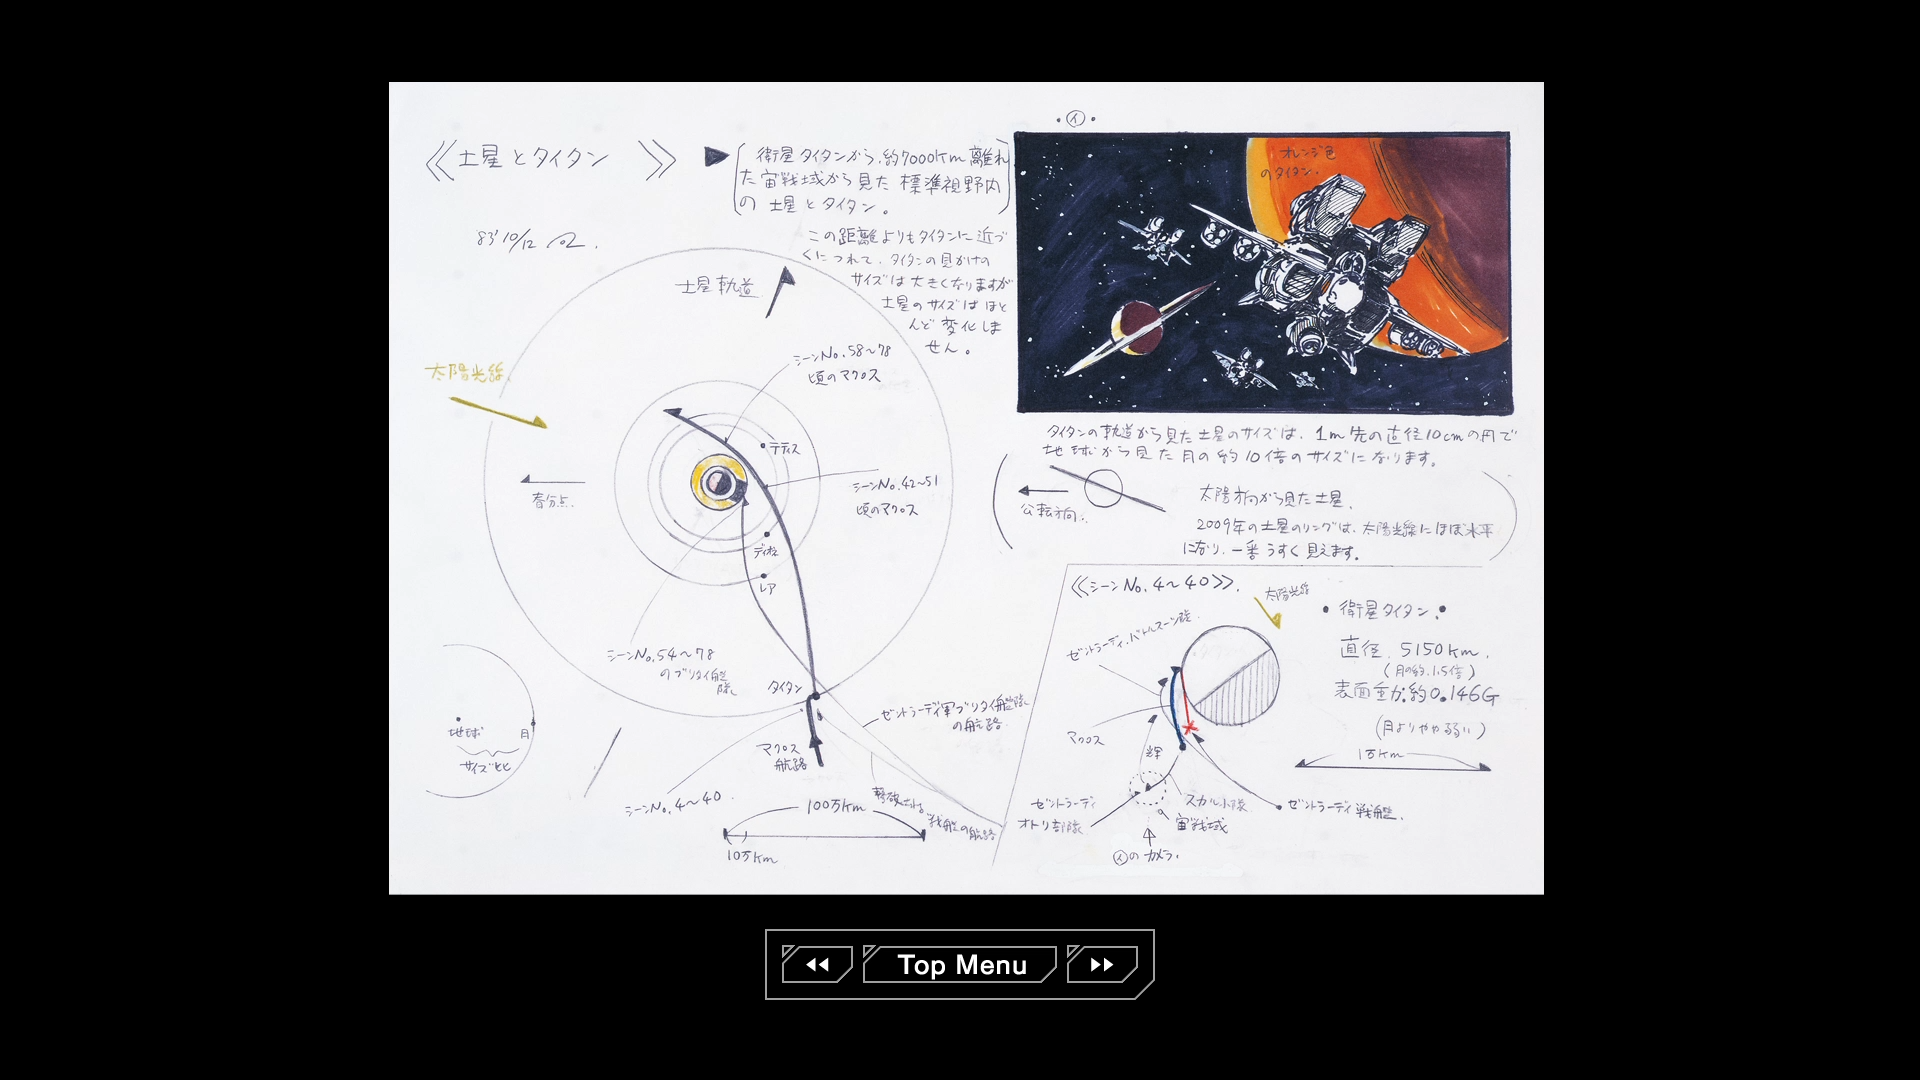 ≪土星とタイタン≫
衛星タイタンから、約7000Km離れ
た宙戦域から見た標準視野内
の土星とタイタン。
この距離よりもタイタンに近づ
くにつれて、タイタンの見かけの
サイズは大きくなりますが
土星のサイズはほと
んど変化しま
せん。
83' 10/12
土星軌道
太陽光線
シーンNo.58〜78
頃のマクロス
テティス
春分点
シーンNo.42〜51
頃のマクロス
ディオネ
レア
シーンNo.54〜78
のブリタイ艦
隊
タイタン
ゼントラーディ軍ブリタイ艦隊
の航路
マクロス
航路
地球 月
サイズ比
シーンNo.4〜40
撃破される
戦艦の航路
100万Km
10万Km
・イ・
オレンジ色
のタイタン
タイタンの軌道から見た土星のサイズは、1m先の直径10cmの円で
地球から見た月の約10倍のサイズになります。
公転方向
太陽方向から見た土星
2009年の土星のリングは、太陽光線にほぼ水平
になり、一番うすく見えます。
≪シーンNo.4〜40≫
太陽光線
ゼントラーディ・バトルスーツ隊
マクロス
輝
ゼントラーディ
オトリ部隊
スカル小隊
宙戦域
イのカメラ
ゼントラーディ戦艦
・衛星タイタン・
直径 5150Km
(月の約1.5倍)
表面重力約0.146G
(月よりやや弱い)
1万Km
Top Menu